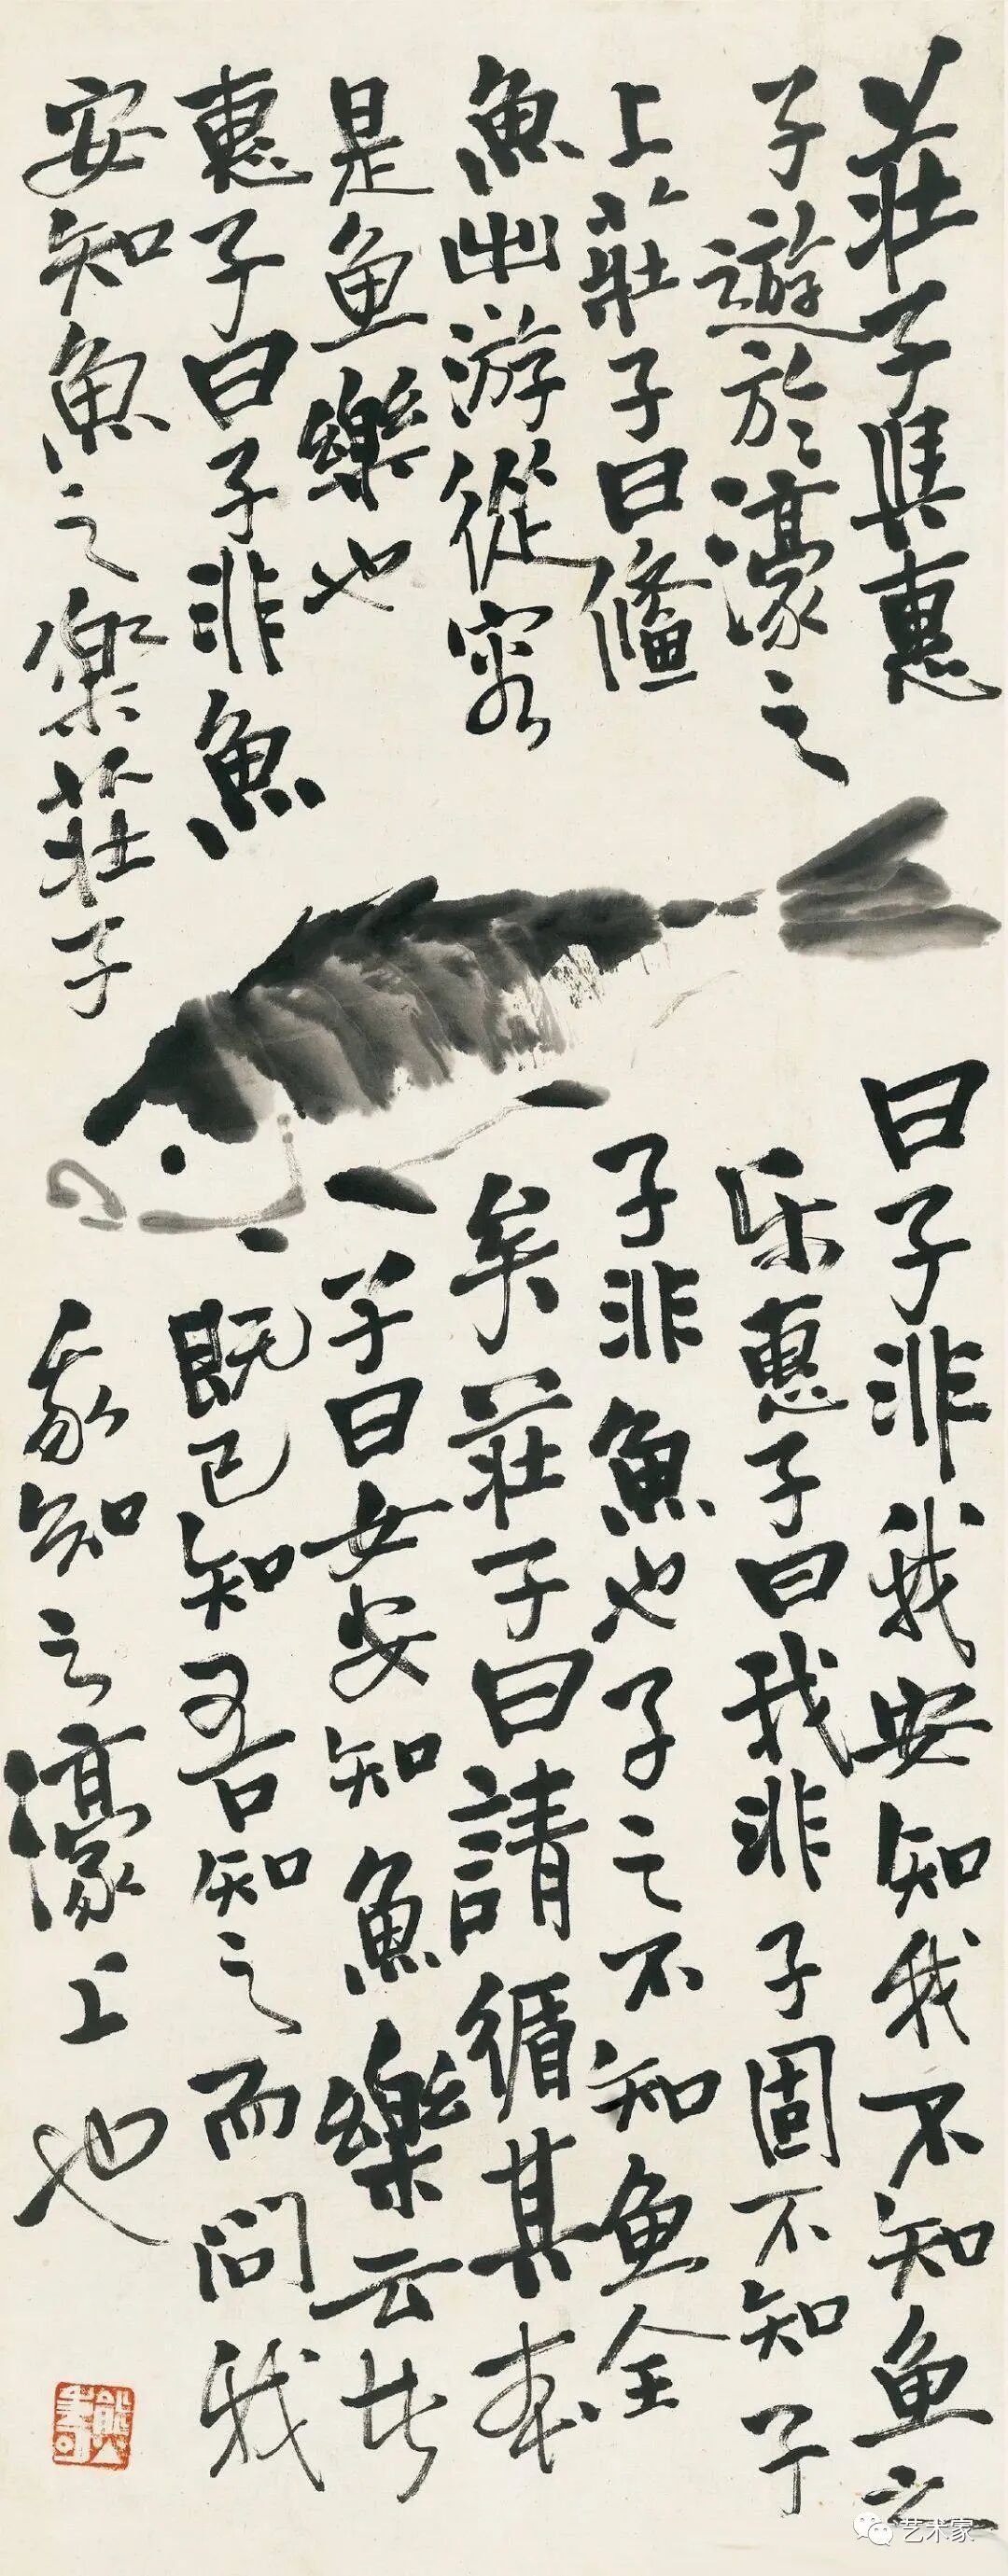 莊子與惠
子遊於濠之
上莊子曰鯈
魚出游從容
是鱼樂也
惠子曰子非魚
安知魚之樂莊子
曰子非我安知我不知鱼之
乐惠子曰我非子固不知子
子非魚也子之不知鱼全
矣莊子曰請循其本
子曰女安知魚樂云者
既已知吾知之而問我
我知之濠上也
艺术家